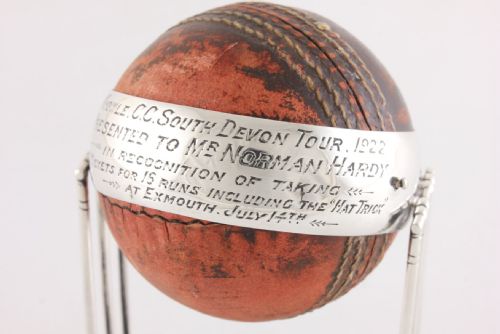 C.C. SOUTH DEVON TOUR, 1922
PRESENTED TO MR NORMAN HARDY
IN RECOGNITION OF TAKING
FOR 18 RUNS INCLUDING THE "HAT TRICK"
AT EXMOUTH. JULY 14TH